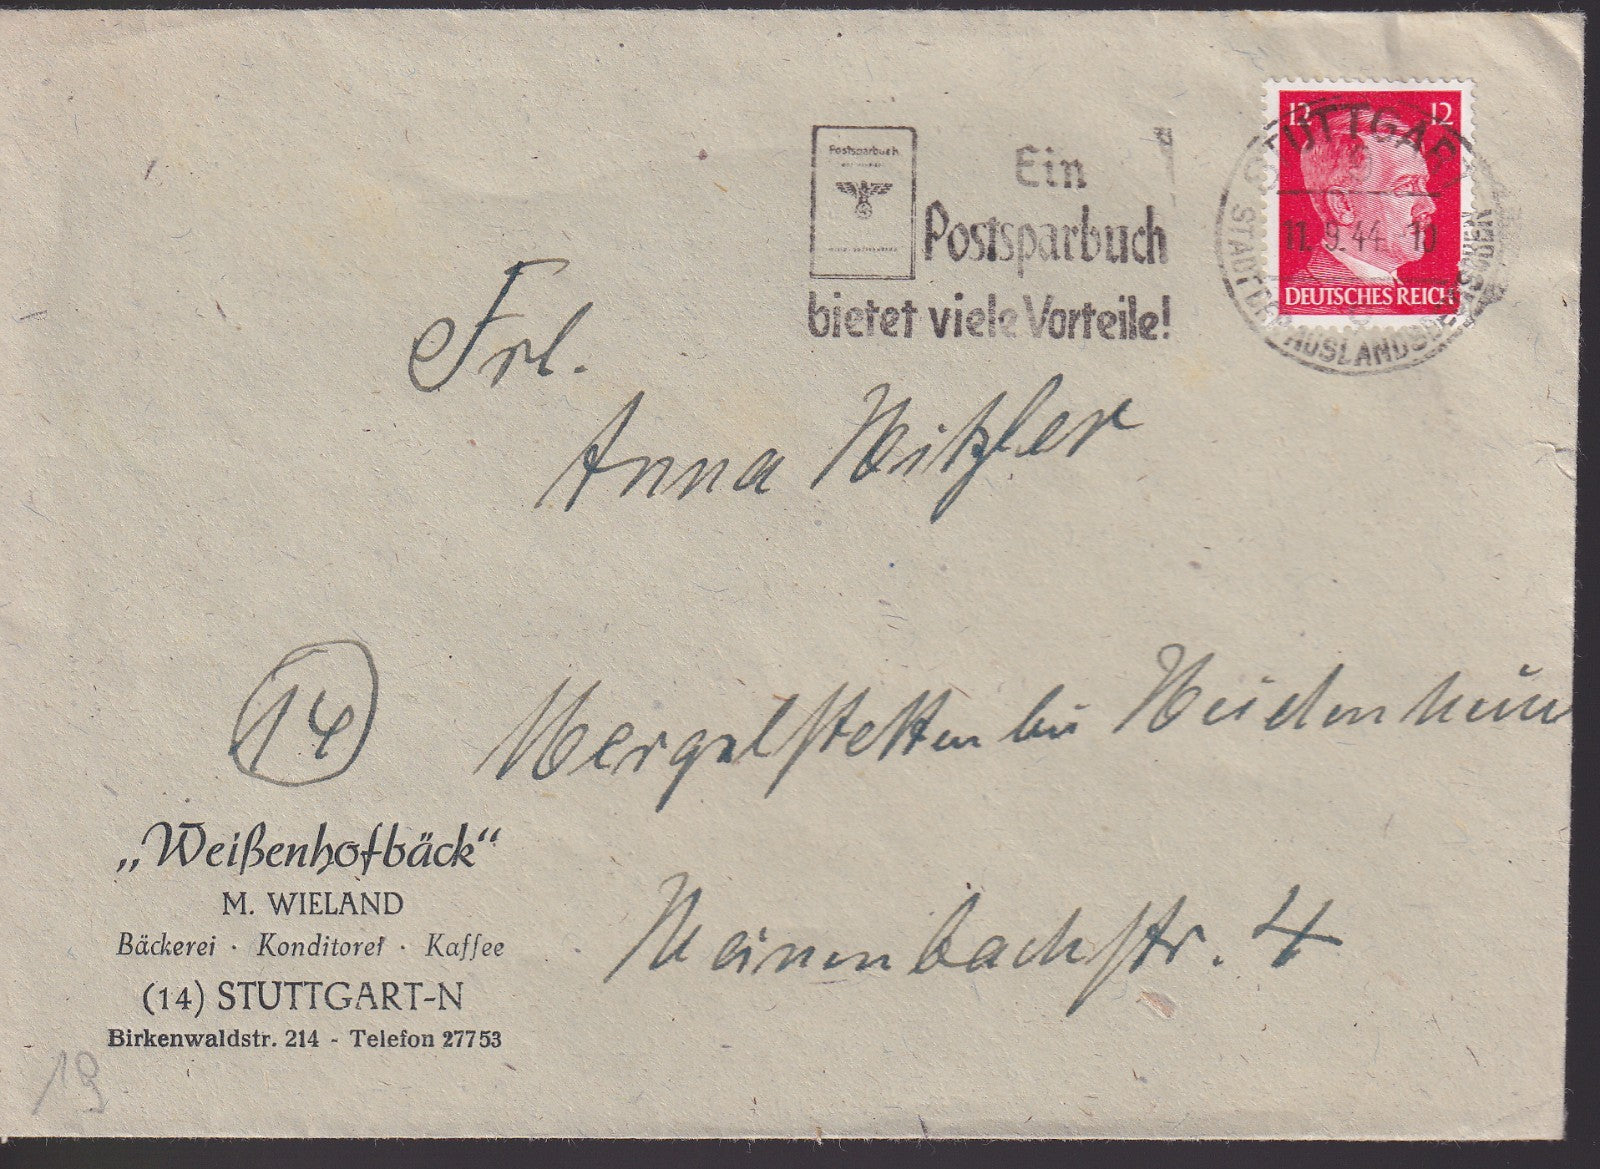 Postsparbuch
Ein
Postsparbuch
bietet viele Vorteile!
12 12
DEUTSCHES REICH
STUTTGART
9
11.9.44.-10
STADT DER AUSLANDSDEUTSCHEN
Frl.
Anna Witzler
14
Mergelstetten bei Heidenheim
„Weißenhofbäck“
M. WIELAND
Bäckerei · Konditorei · Kaffee
(14) STUTTGART-N
Birkenwaldstr. 214 - Telefon 27753
str. 4
19